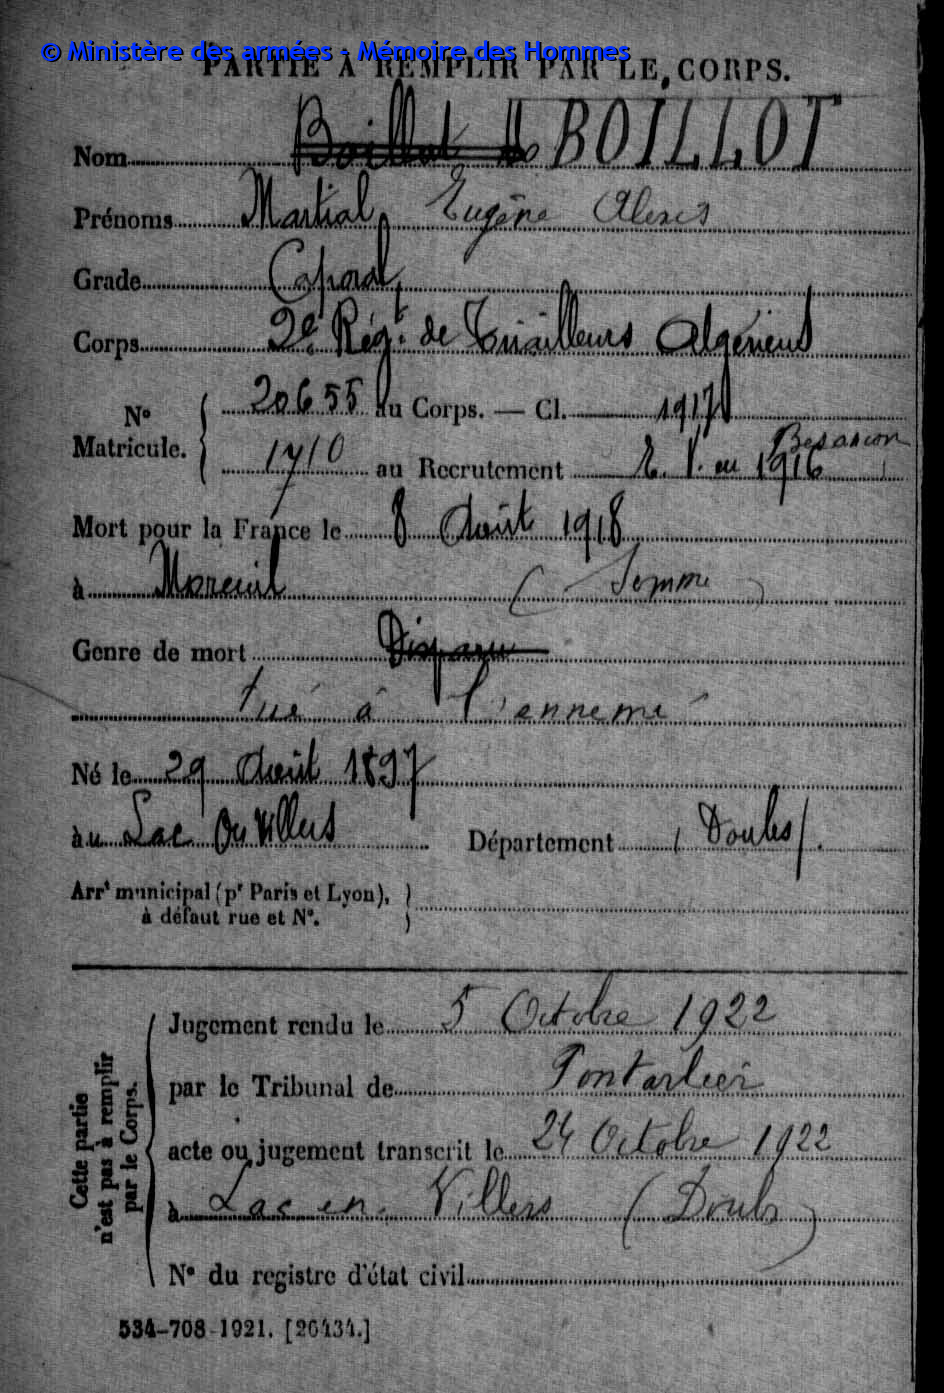 © Ministère des armées - Mémoire des Hommes
PARTIE À REMPLIR PAR LE CORPS.
Nom Boillot BOILLOT
Prénoms Martial Eugène Alexis
Grade Caporal
Corps 2e Régt de Tirailleurs Algériens
No Matricule. 20655 au Corps. — Cl. 1917
1710 au Recrutement E. V. en 1916 Besançon
Mort pour la France le 8 Août 1918
à Moreuil (Somme)
Genre de mort Disparu
tué à l'ennemi
Né le 29 Août 1897
au Lac Ou Villers Département (Doubs)
Arrt municipal (pr Paris et Lyon), à défaut rue et No.
Cette partie n'est pas à remplir par le Corps.
Jugement rendu le 5 Octobre 1922
par le Tribunal de Pontarlier
acte ou jugement transcrit le 24 Octobre 1922
à Lac en Villers (Doubs)
No du registre d'état civil
534-708-1921. [26434.]